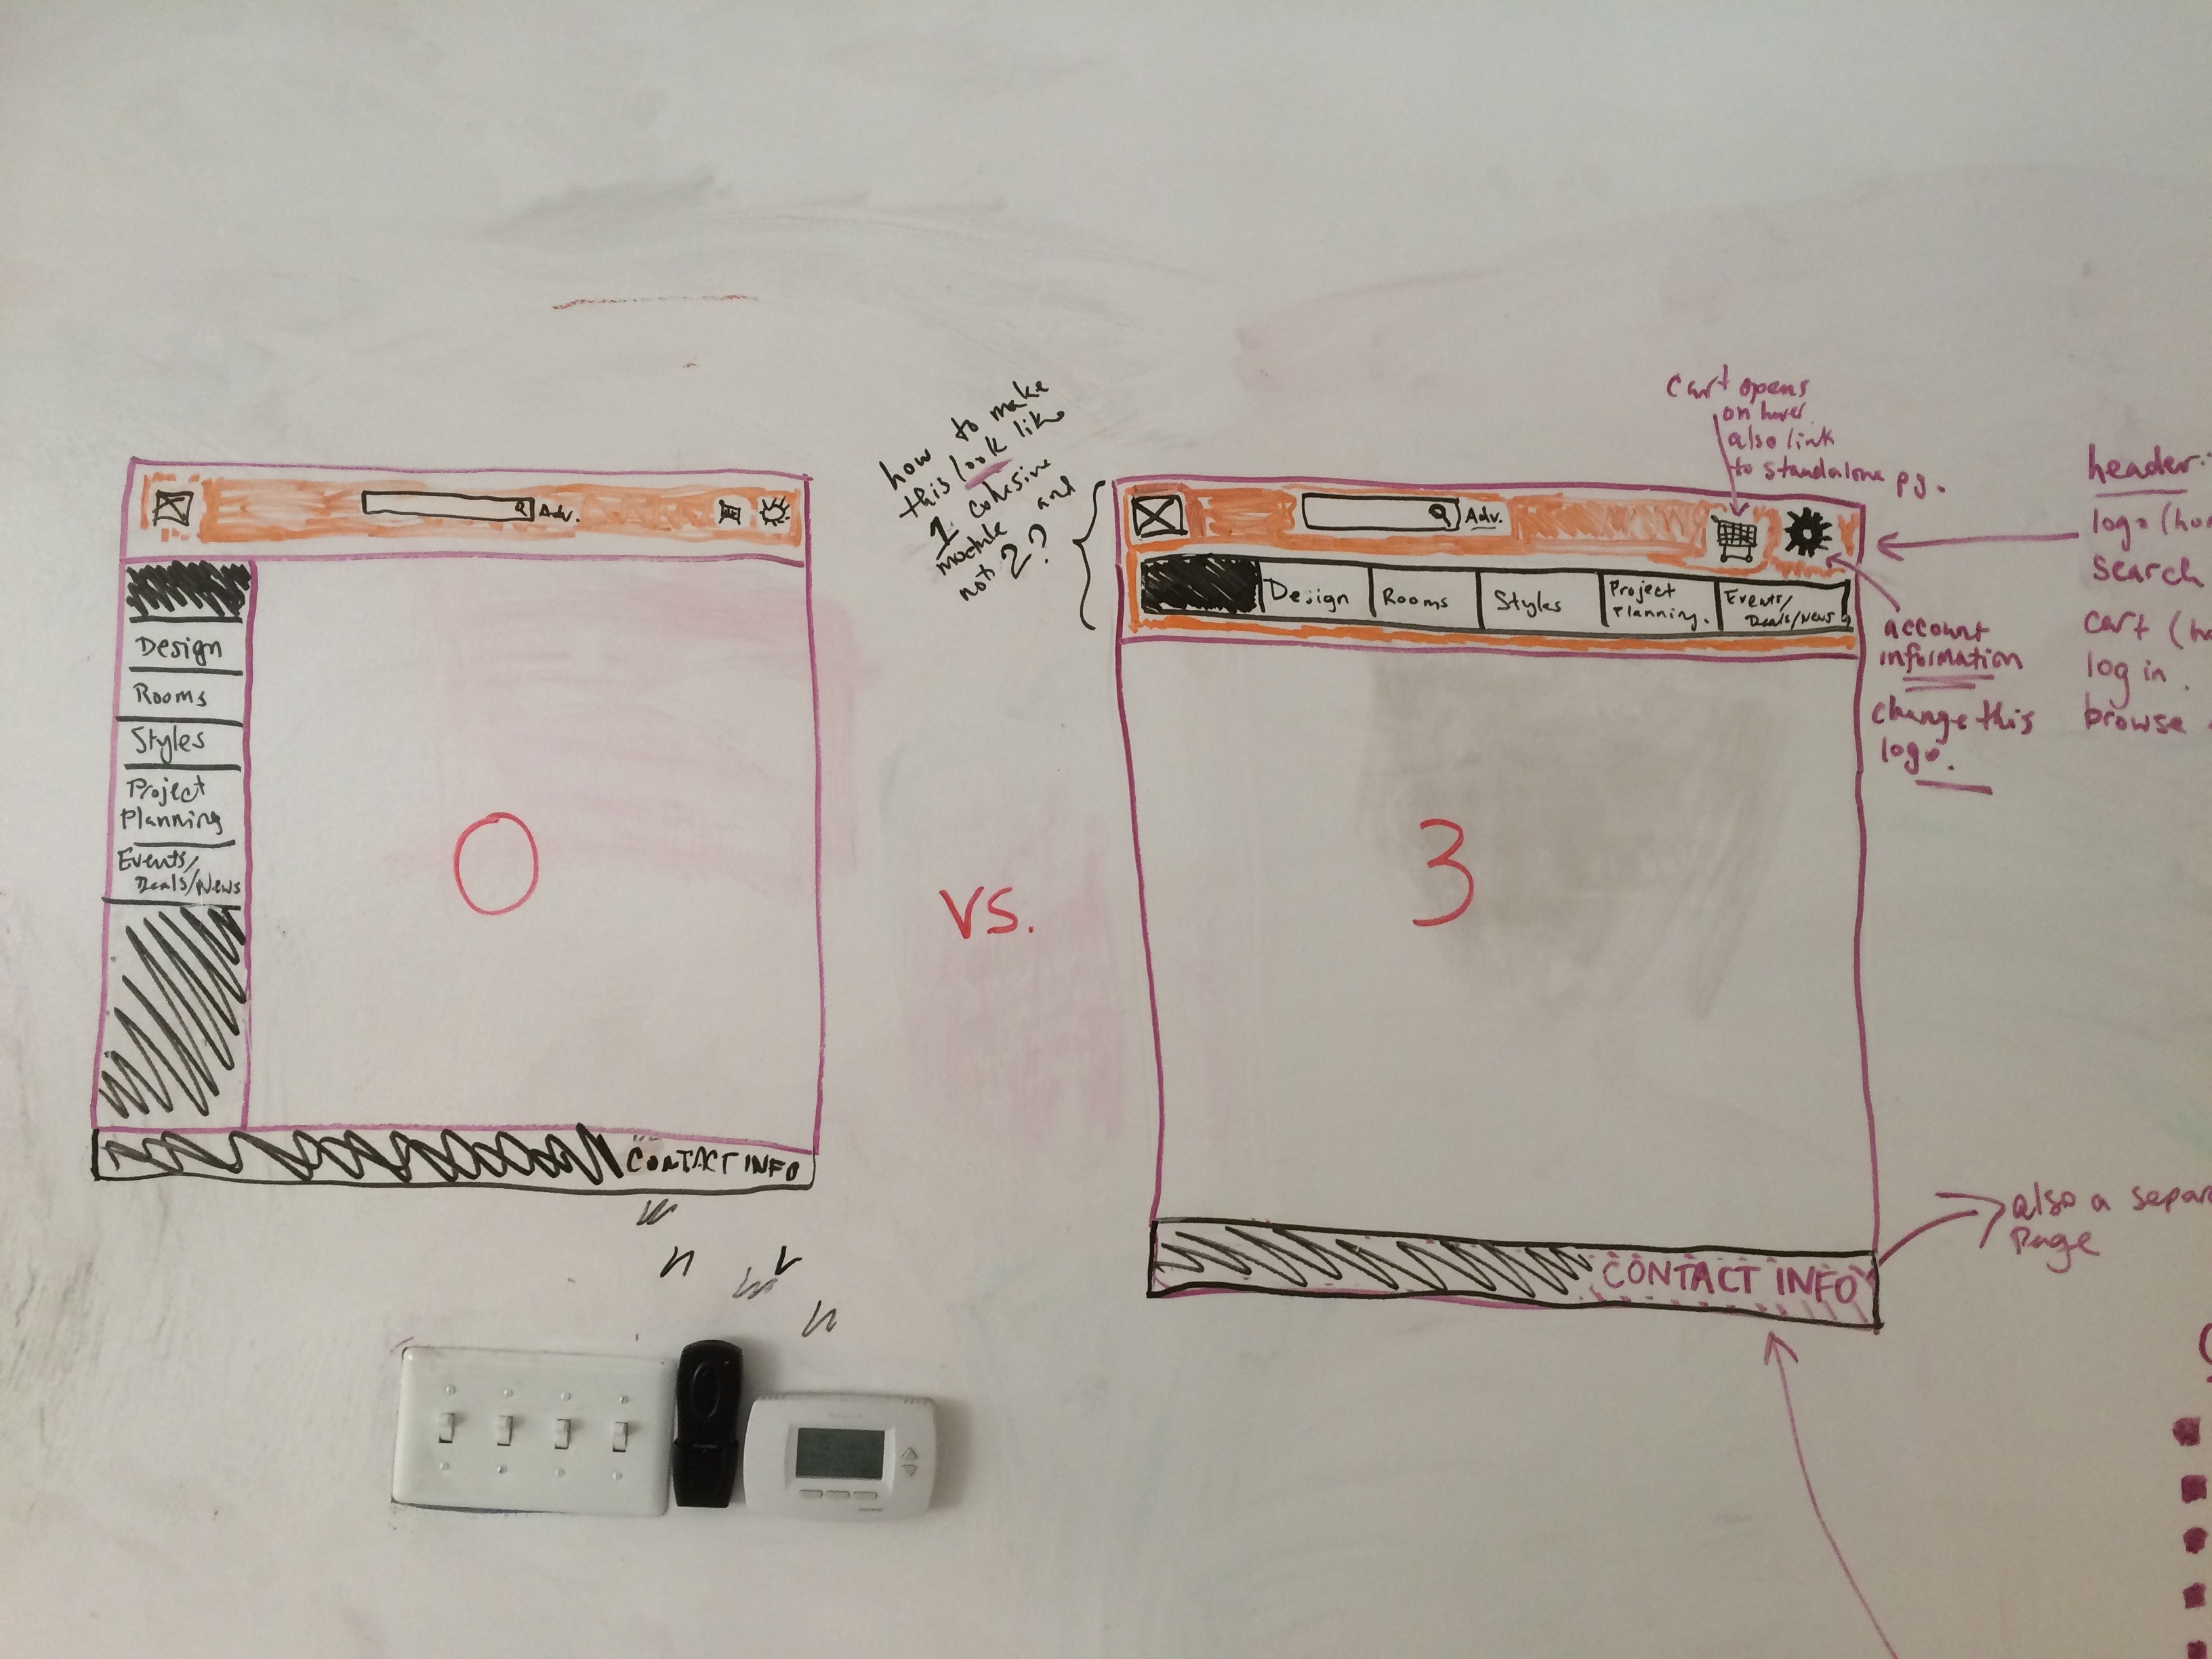 Adv.
Design
Rooms
Styles
Project
Planning
Events/
Deals/News
CONTACT INFO
0
vs.
how to make
this look like
1 cohesive
module and
not 2?
Cart opens
on hover
also link
to standalone pg.
Adv.
Design
Rooms
Styles
Project
Planning.
Events/
Deals/News
3
CONTACT INFO
account
information
change this
logo.
header:
logo
search
cart
log in.
browse
also a
page